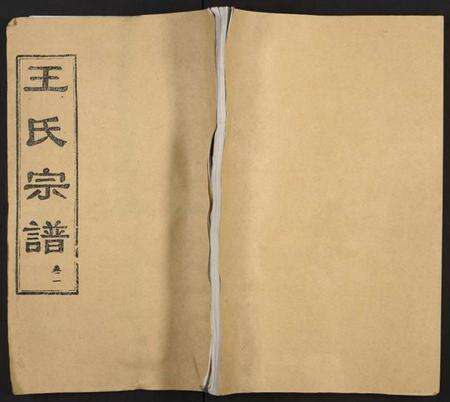 王氏宗譜
卷一